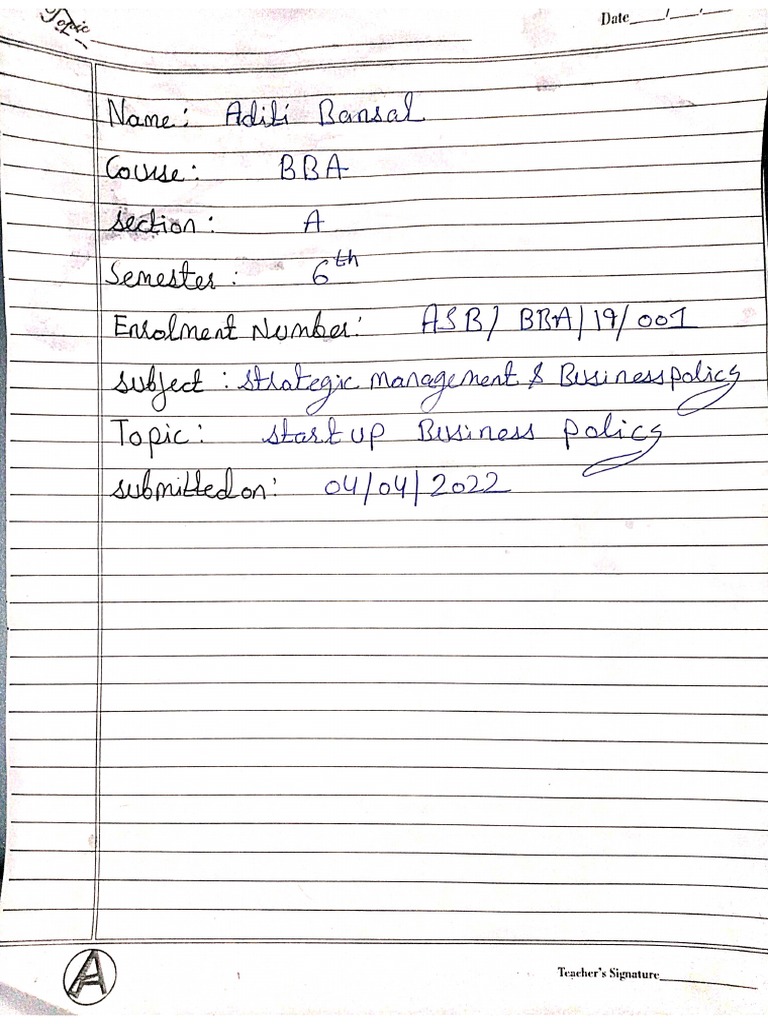 Topic
Date___/___/___
Name: Aditi Bansal
Course: BBA
Section: A
Semester: 6th
Enrolment Number: ASB/ BBA/19/001
Subject: Strategic management & Business policy
Topic: Start up Business policy
Submitted on: 04/04/2022
A
Teacher's Signature